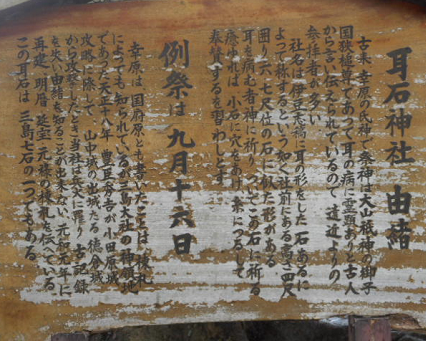 耳石神社 由緒
古来 幸原の氏神で祭神は大山祇神の御子
国狭槌尊であって耳の病に霊顕ありと古人
から言い伝えられているので遠近よりの
参拝者が多い
社名は伊豆志稿に耳の形をした石あるに
よって称するという如く社前にある高さ四尺
囲り六、七尺位の石に似た形がある
耳を病む者神に祈り、ついでこの石に祈る
癒ゆれば 小石に穴をあけ 糸につるして
奉賛するを習わしとす
例祭は 九月十六日
幸原は国府原とも書いた
によっても知られているが三島大社の神領
であった 天正十八年 豊臣秀吉が小田原城
攻略に際して 山中城の出城たる
当社は兵火に罹り 古記録
を失い由緒を知ることが出来ない、元和元年に
再建 明暦 延宝 元禄の棟札を伝えている
この耳石は 三島七石の一つである